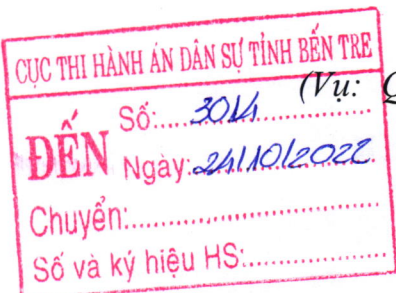 CỤC THI HÀNH ÁN DÂN SỰ TỈNH BẾN TRE
(Vụ: Q
ĐẾN
Số:.... 3014
Ngày: 24/10/2022
Chuyển:
Số và ký hiệu HS: